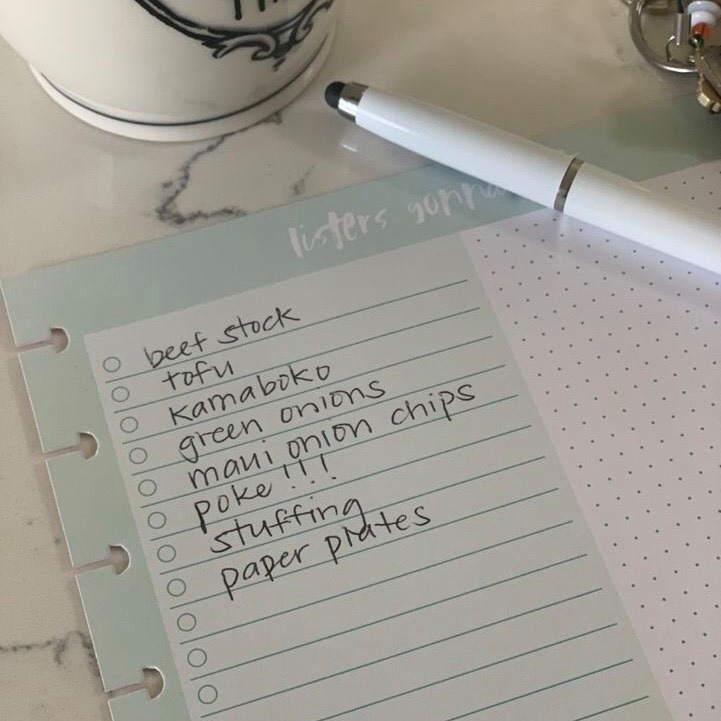 listers gonna
beef stock
tofu
kamaboko
green onions
maui onion chips
poke!!!
stuffing
paper plates